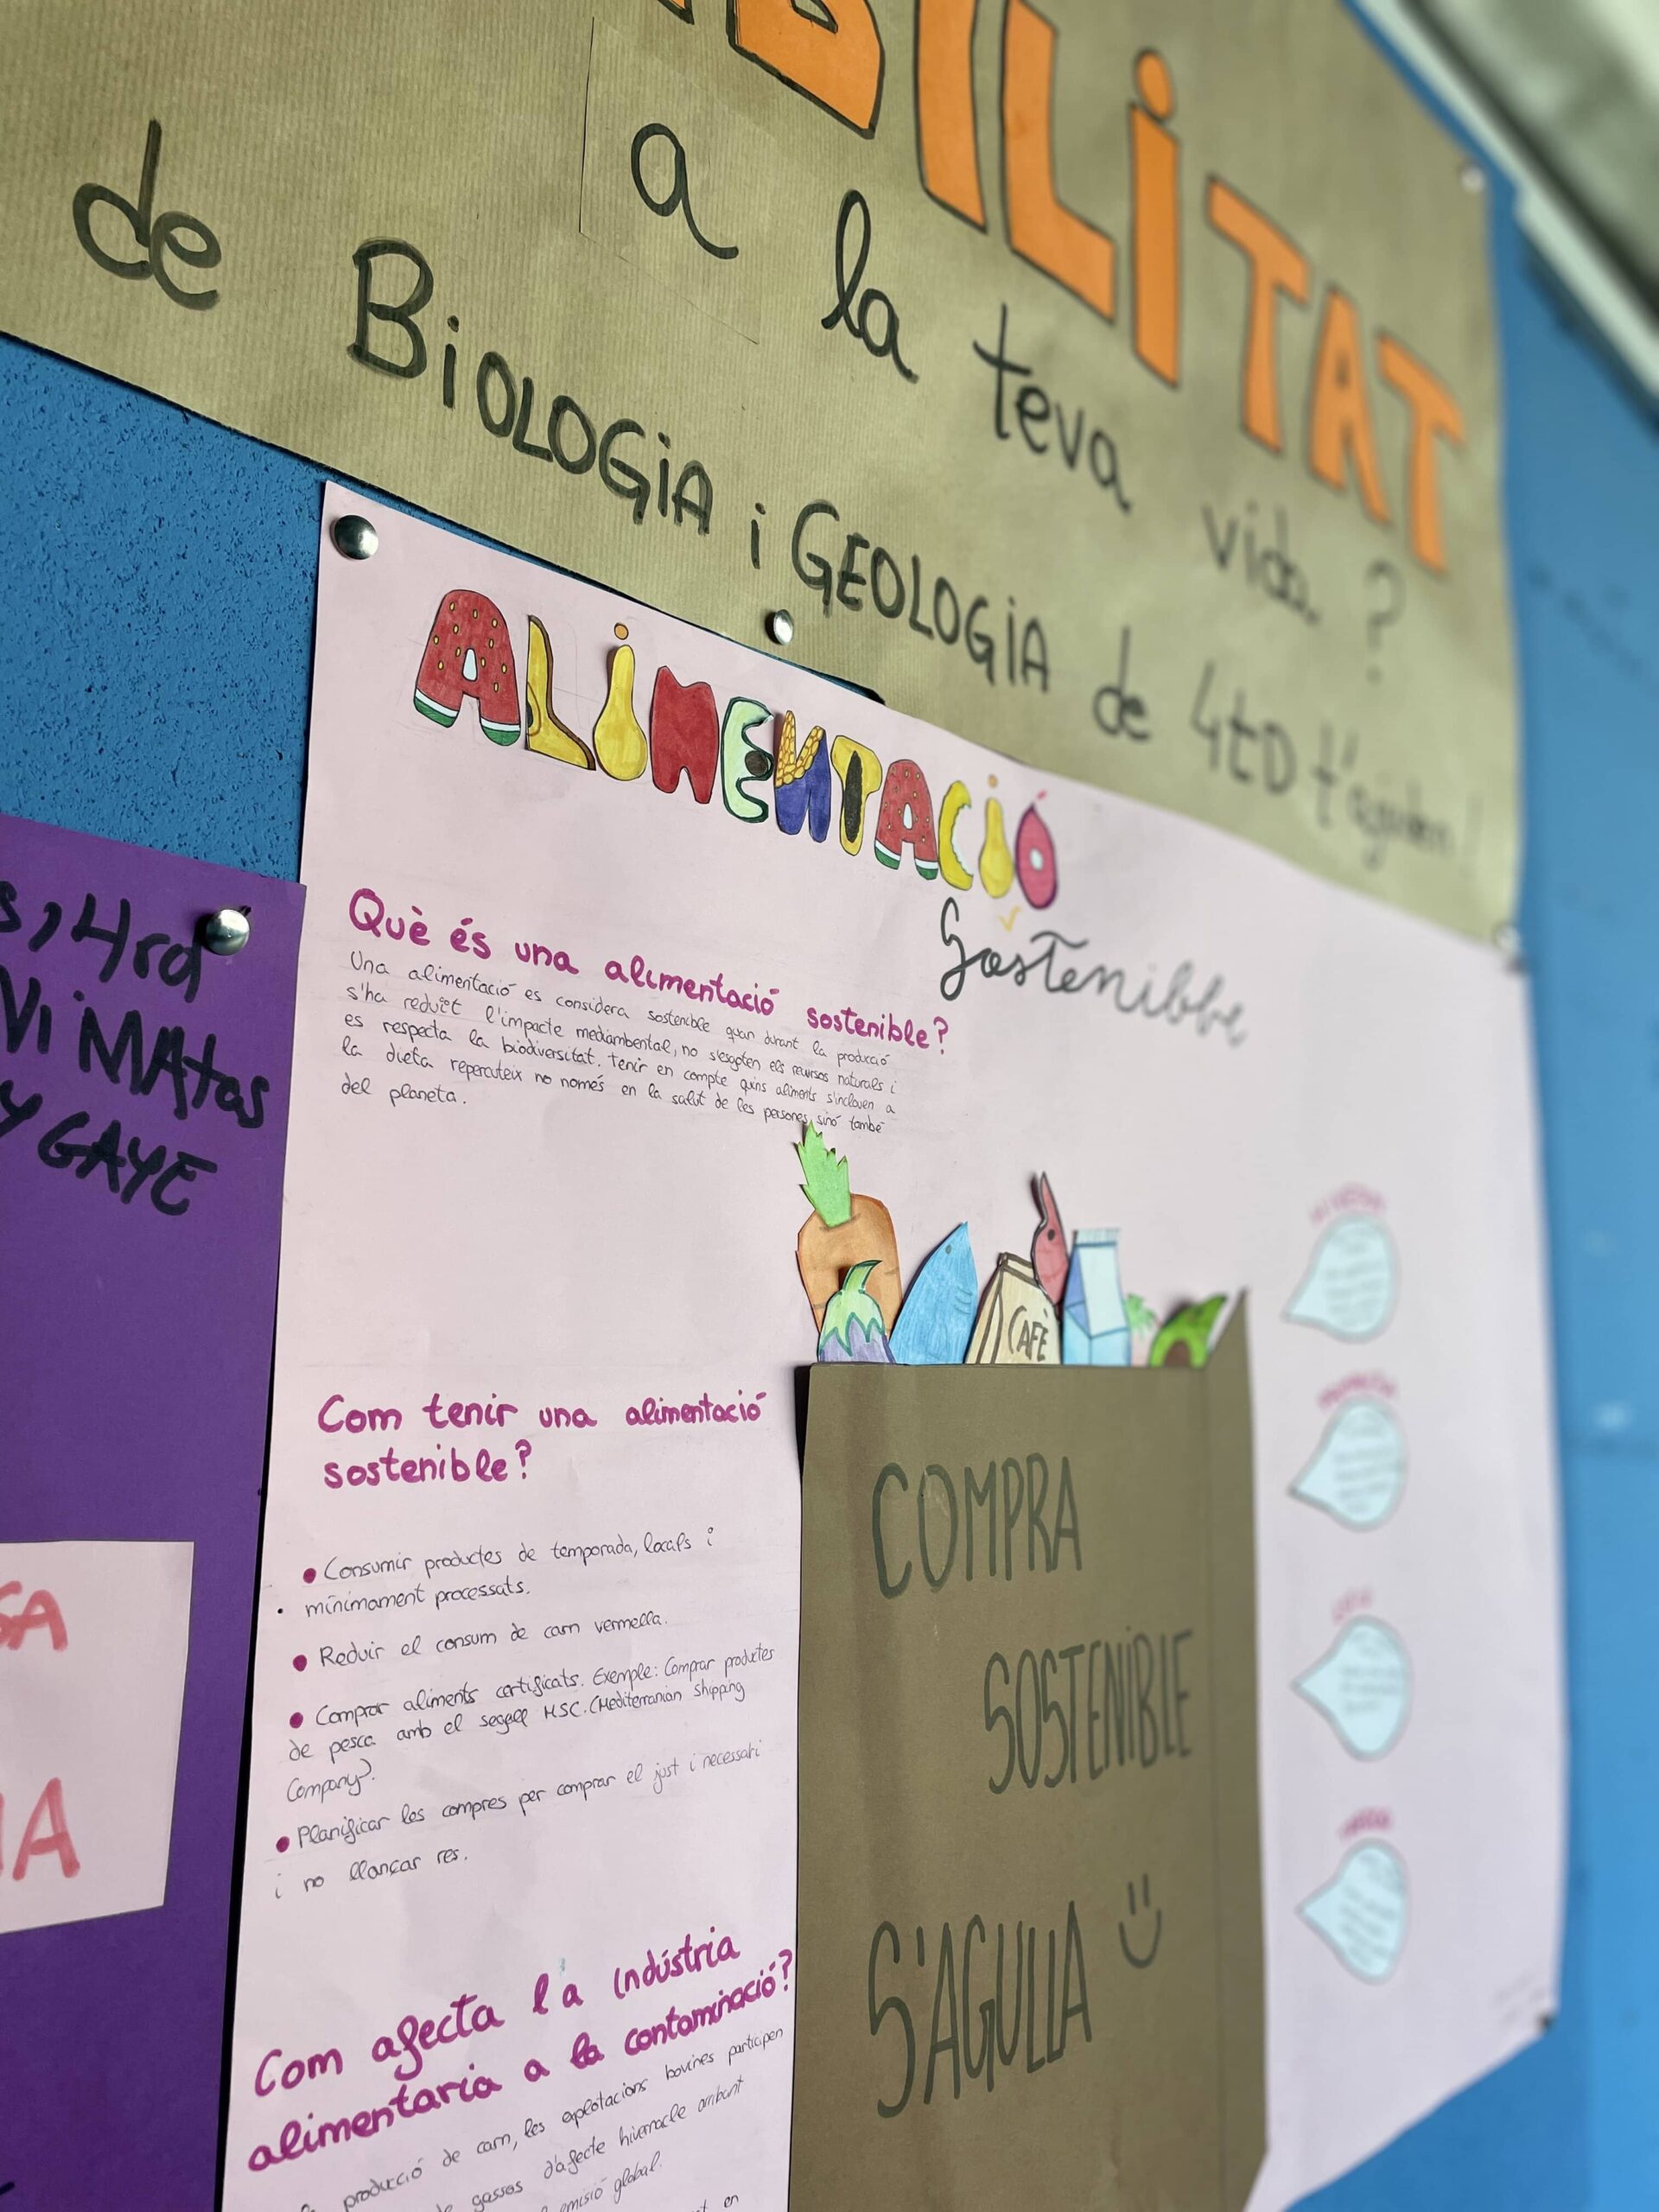 BILITAT
a la teva vida?
de BIOLOGIA i GEOLOGIA de 4tD t'ajuden!
ALIMENTACIÓ
Sostenible
Què és una alimentació sostenible?
Una alimentació es considera sostenible quan durant la producció
s'ha reduït l'impacte mediambental, no s'esgoten els recursos naturals i
es respecta la biodiversitat. Tenir en compte quins aliments s'inclouen a
la dieta repercuteix no només en la salut de les persones, sinó també
del planeta.
s, 4rd
Vi MAtas
y GAYE
CAFÈ
Com tenir una alimentació
sostenible?
• Consumir productes de temporada, locals i
mínimament processats.
• Reduir el consum de carn vermella.
• Comprar aliments certificats. Exemple: Comprar productes
de pesca amb el segell MSC. (Mediterranian Shipping
Company).
• Planificar les compres per comprar el just i necessari
i no llançar res.
COMPRA
SOSTENIBLE
S'AGULLA
SA
IA
Com afecta la indústria
alimentaria a la contaminació?
producció de carn, les explotacions bovines participen
de gassos d'afecte hivernacle arribant
emisió global.
en